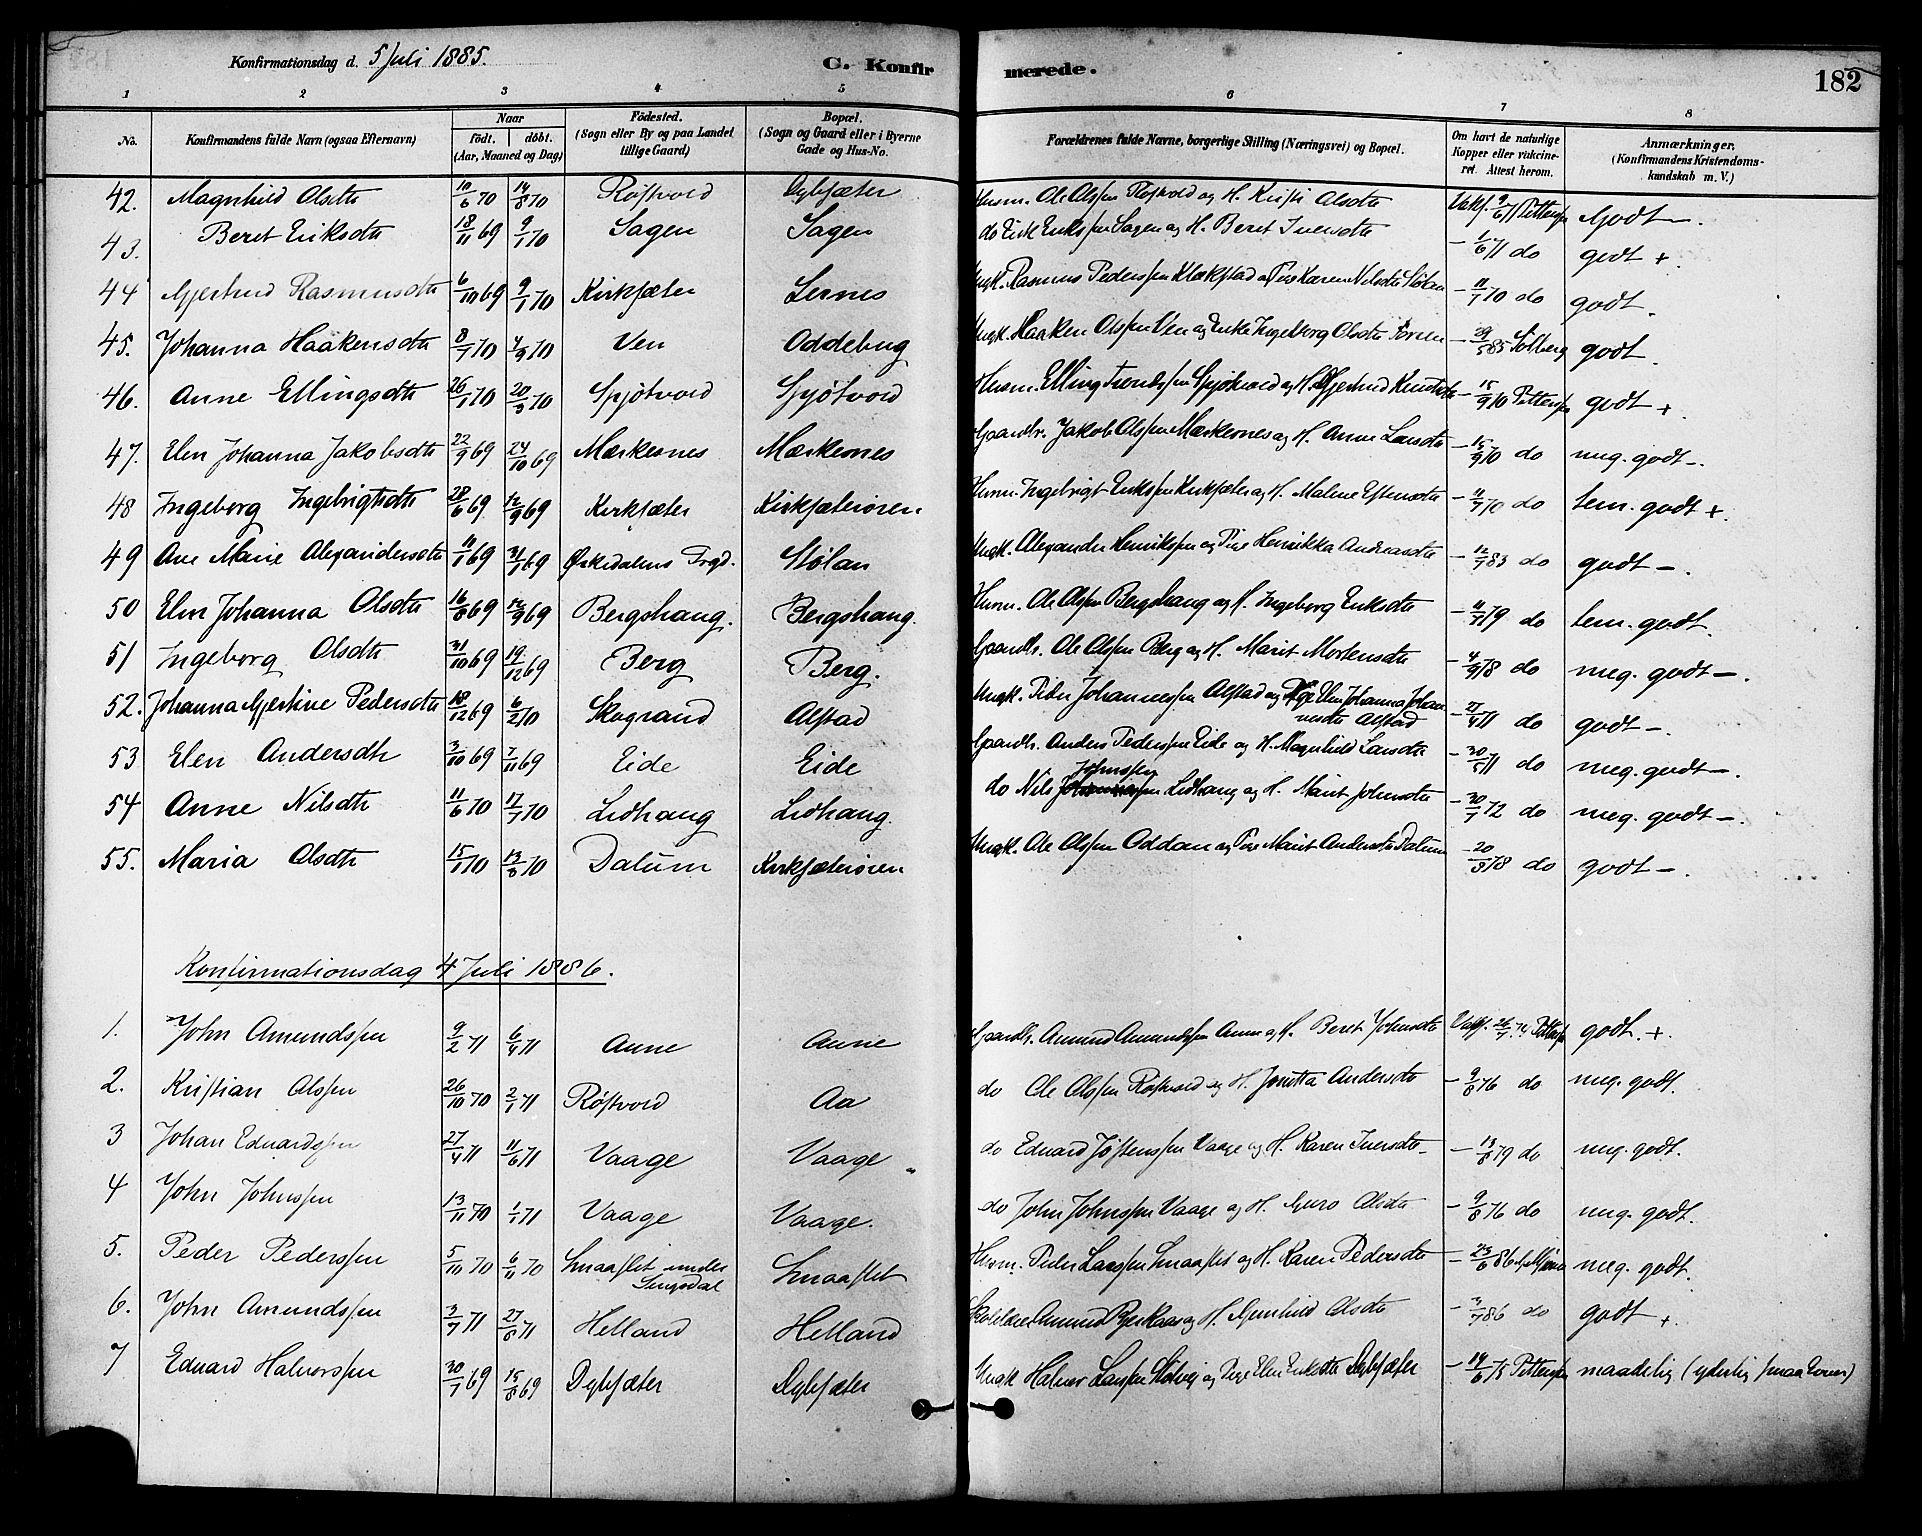 Konfirmationsdag d. 5 Juli 1885.
C. Konfirmerede.
182
1 2 3 4 5 6 7 8
No. Konfirmandens fulde Navn (ogsaa Efternavn) Naar født. døbt. (Aar, Maaned og Dag) Fødested. (Sogn eller By og paa Landet tillige Gaard) Bopæl. (Sogn og Gaard eller i Byerne Gade og Hus-No. Forældrenes fulde Navne, borgerlige Stilling (Næringsvei) og Bopæl. Om havt de naturlige Kopper eller vakcineret. Attest herom. Anmærkninger. (Konfirmandens Kristendomskundskab m. V.)
42. Magnhild Olsdtr 10/6 70 14/8 70 Røstvold Dybsæter Husm. Ole Olssen Røstvold og H. Kirsti Olsdtr Vakc. 9/6 71 Pettersen Godt —.
43. Beret Eriksdtr 18/11 69 9/1 70 Sagen Sagen do Erik Erikssen Sagen og H. Beret Iversdtr — 1/6 71 do godt +.
44 Gjertrud Rasmusdtr 6/10 69 9/1 70 Kirksæter Lernes Ungk. Rasmus Pederssen Klækstad og Pige Karen Nilsdtr Stølan — 11/7 70 do godt.
45. Johanna Haakensdtr 8/7 70 4/9 70 Ven Oddebug Ungk. Haaken Olssen Ven og Enke Ingeborg Olsdtr — 29/5 85 Solberg godt.
46. Anne Ellingsdtr 26/1 70 20/3 70 Spjøtvold Spjøtvold Husm. Elling Trondssen Spjøtvold og H. Gjertrud Knutsdtr — 15/9 70 Pettersen godt +
47. Elen Johanna Jakobsdtr 22/9 69 24/10 69 Mærkesnes Mærkesnes Gaardbr. Jakob Olssen Mærkesnes og H. Anne Larsdtr — 15/9 70 do meg. godt —.
48 Ingeborg Ingebrigtsdtr 28/6 69 12/9 69 Kirksæter Kirksæterøren Husm. Ingebrigt Erikssen Kirksæter og H. Malene Estensdtr — 11/7 70 do tem. godt +.
49 Ane Marie Alexandersdtr 11/1 69 31/1 69 Ørkedalens Prgd. Stølan Ungk. Alexander Henrikssen og Pige Henrikka Andreasdtr — 12/7 83 do godt —.
50 Elen Johanna Olsdtr 16/8 69 12/9 69 Bergshaug. Bergshaug. Husm. Ole Olssen Bergshaug og H. Ingeborg Eriksdtr — 11/7 79 do tem. godt.
51 Ingeborg Olsdtr 31/10 69 19/12 69 Berg Berg. Gaardbr. Ole Olssen Berg og H. Marit Mortensdtr — 4/9 78 do meg. godt —.
52. Johanna Gjertine Pedersdtr 18/12 69 6/2 70 Skogrand Alstad Ungk. Peder Johannessen Alstad og Pige Elen Johanna Johannesdtr Alstad — 27/4 71 do godt —.
53 Elen Andersdtr 3/10 69 7/11 69 Eide Eide Gaardbr. Anders Pederssen Eide og H. Magnhild Larsdtr — 30/5 71 do meg. godt —.
54 Anne Nilsdtr 11/6 70 17/7 70 Lidhaug Lidhaug. do Nils Johnssen Lidhaug og H. Marit Johnsdtr — 30/7 72 do meg. godt —.
55. Maria Olsdtr 15/1 70 13/3 70 Dalum Kirksæterøren Ungk. Ole Olssen Oddan og Pige Marit Andersdtr Dalum — 20/3 78 do godt —.
Konfirmationsdag 4 Juli 1886.
1. John Amundssen 9/2 71 6/4 71 Aune Aune Gaardbr. Amund Amundssen Aune og H. Beret Johnsdtr Vakc. Pettersen godt. +.
2. Kristian Olssen 26/10 70 2/1 71 Røstvold Aa do Ole Olssen Røstvold og H. Jonetta Andersdtr — 9/8 76 do meg. godt.
3 Johan Eduardssen 27/4 71 11/6 71 Vaage Vaage do Eduard Jøstenssen Vaage og H. Karen Iversdtr — 13/8 79 do meg. godt.
4 John Johnssen 13/11 70 1/1 71 Vaage Vaage. do John Johnssen Vaage og H. Guro Olsdtr — 9/8 76 do meg. godt.
5. Peder Pederssen 5/10 70 6/11 70 Smaaslet under Singsdal Smaaslet Husm. Peder Larssen Smaaslet og H. Karen Pedersdtr — 23/6 86 meg. godt.
6. John Amundssen 3/7 71 27/8 71 Helland Helland Skolelærer Amund og H. Gunhild Olsdtr — 3/7 86 do godt +.
7 Eduard Halvorssen 30/7 69 15/8 69 Dybsæter Dybsæter Ungk Halvor Larssen og Pige Elen Eriksdtr Dybsæter — 14/6 75 Pettersen maadelig (yderlig smaa Evner)